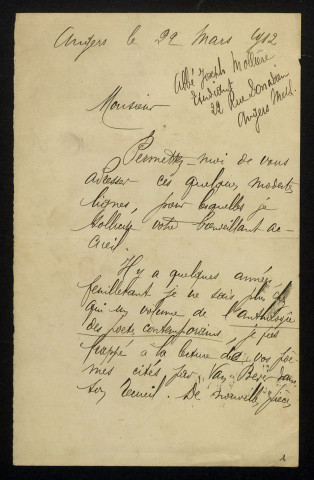 Angers le 22 Mars 1912
Abbé Joseph
Etudiant
22 Rue Donadieu
Angers M et L.
Monsieur
Permettez-moi de vous
adresser ces quelques modestes
lignes, pour lesquelles je
sollicite votre bienveillant ac-
cueil.
Il y a quelques années,
feuilletant je ne sais plus
qui un volume de l'anthologie
des poètes contemporains, je fus
frappé à la lecture de vos poè-
mes cités par Van Bever dans
son recueil. De nouvelles pièces,
1